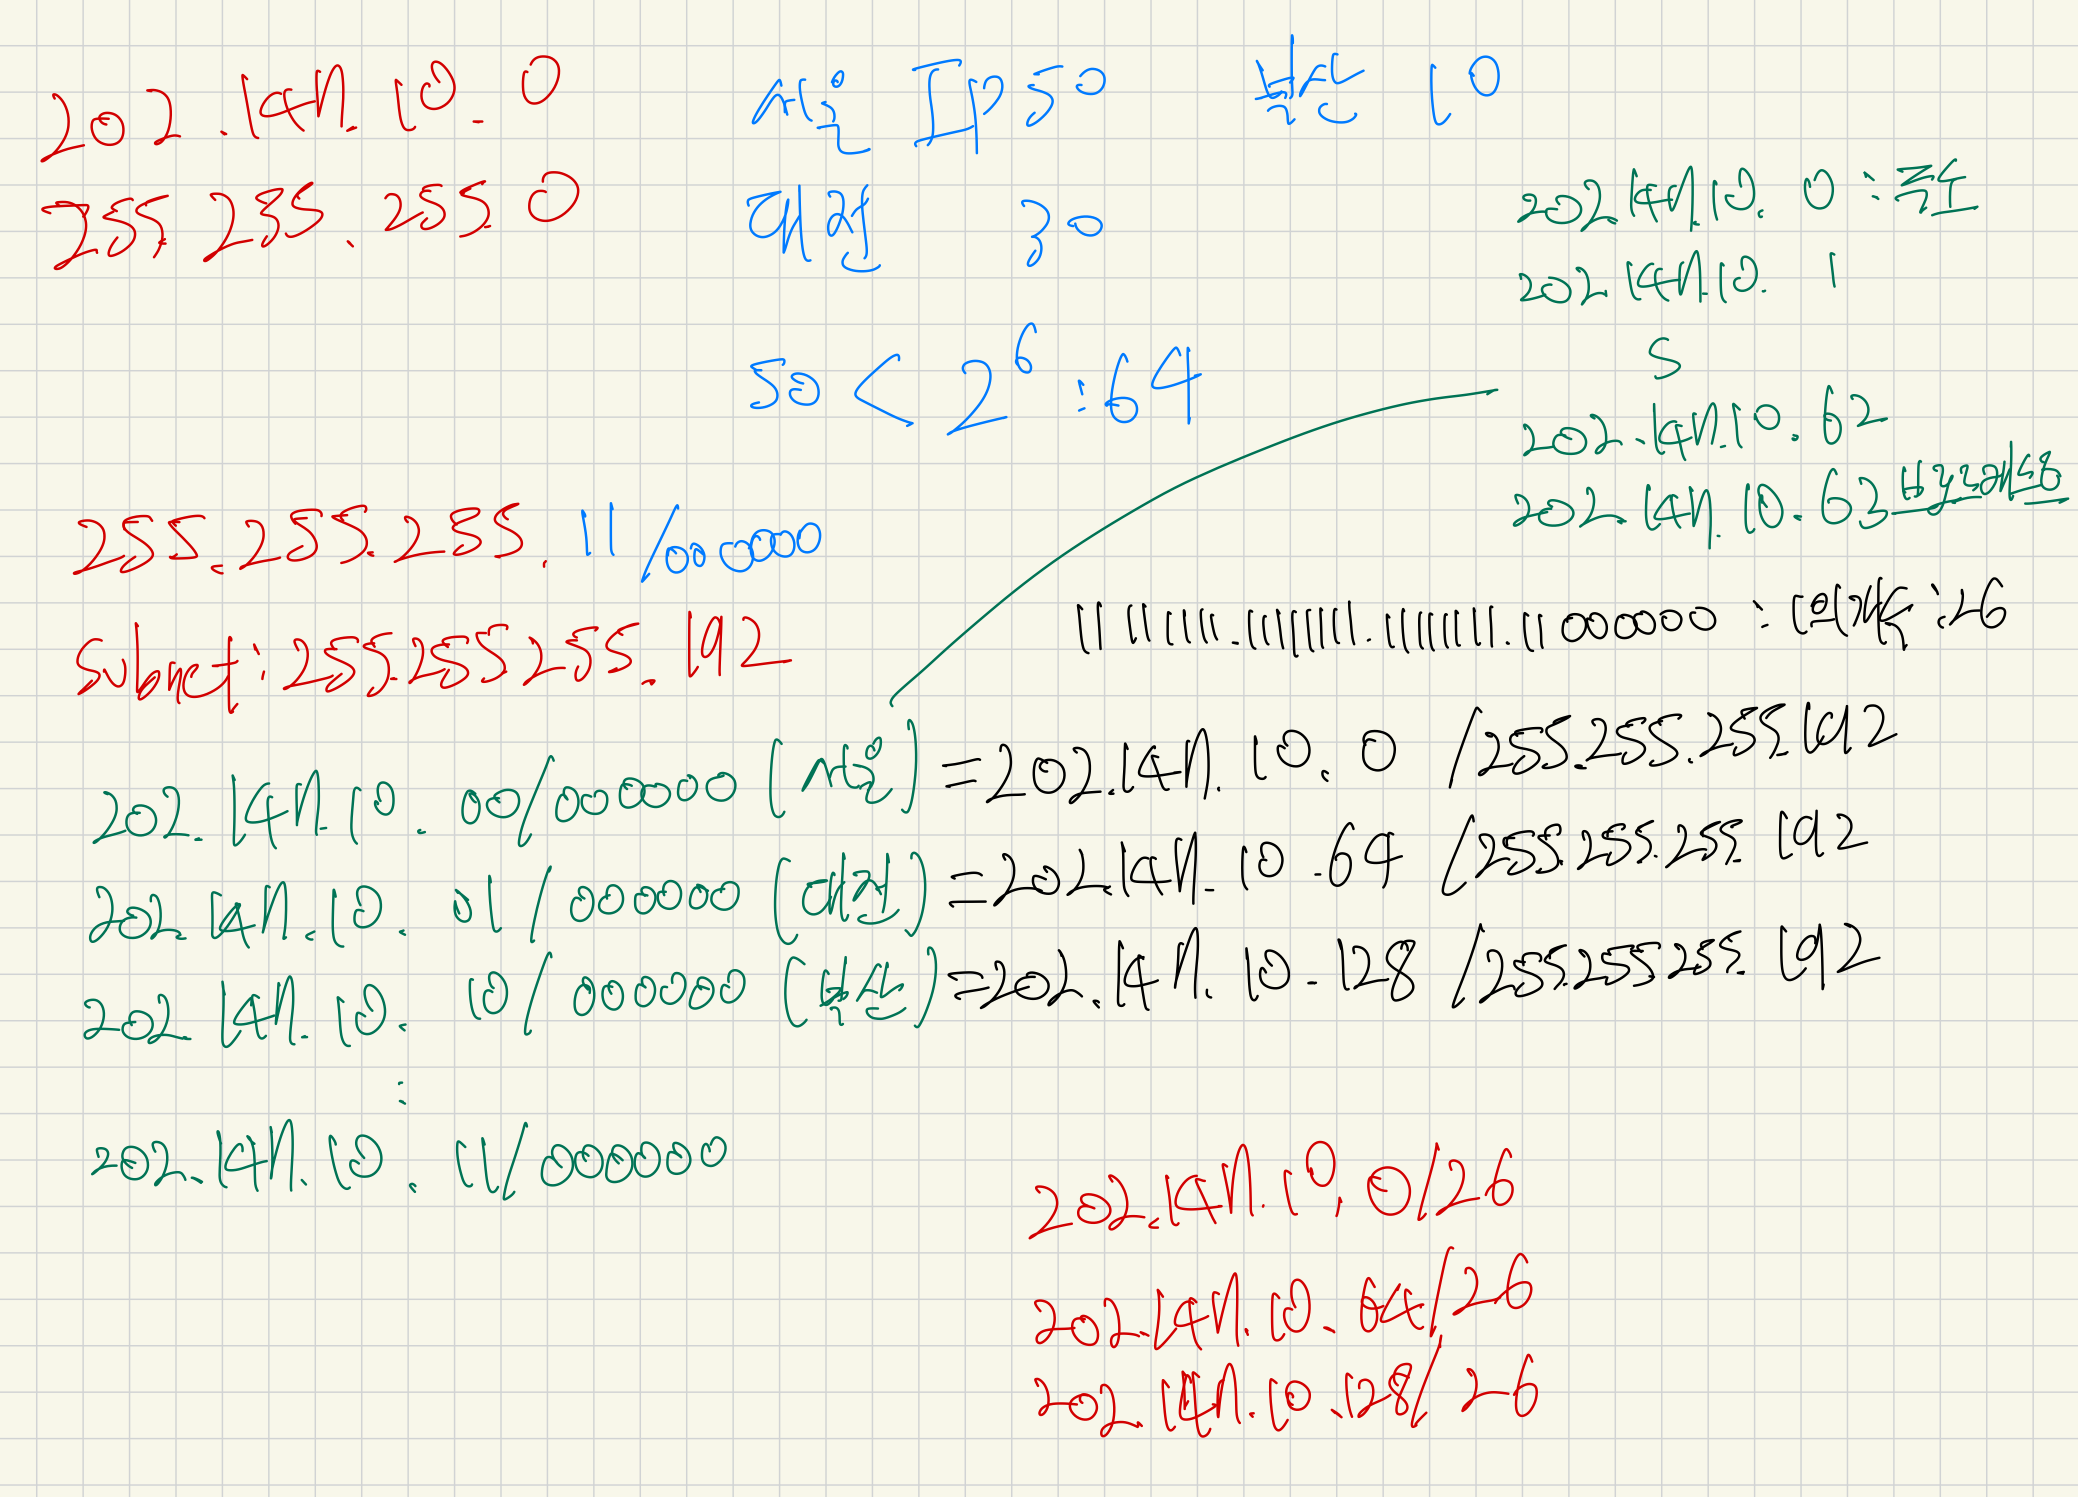 202.147.10.0
255.255.255.0
서울 IP 50 부산 10
대전 30
50 < 2^6 : 64
202.147.10.0 : 주소
202.147.10.1
~
202.147.10.62
202.147.10.63
255.255.255.11/000000
Subnet : 255.255.255.192
11111111.11111111.11111111.11000000 : 1의개수 : 26
202.147.10.00/000000 (서울) = 202.147.10.0 /255.255.255.192
202.147.10.01/000000 (대전) = 202.147.10.64 /255.255.255.192
202.147.10.10/000000 (부산) = 202.147.10.128 /255.255.255.192
:
202.147.10.11/000000
202.147.10.0/26
202.147.10.64/26
202.147.10.128/26